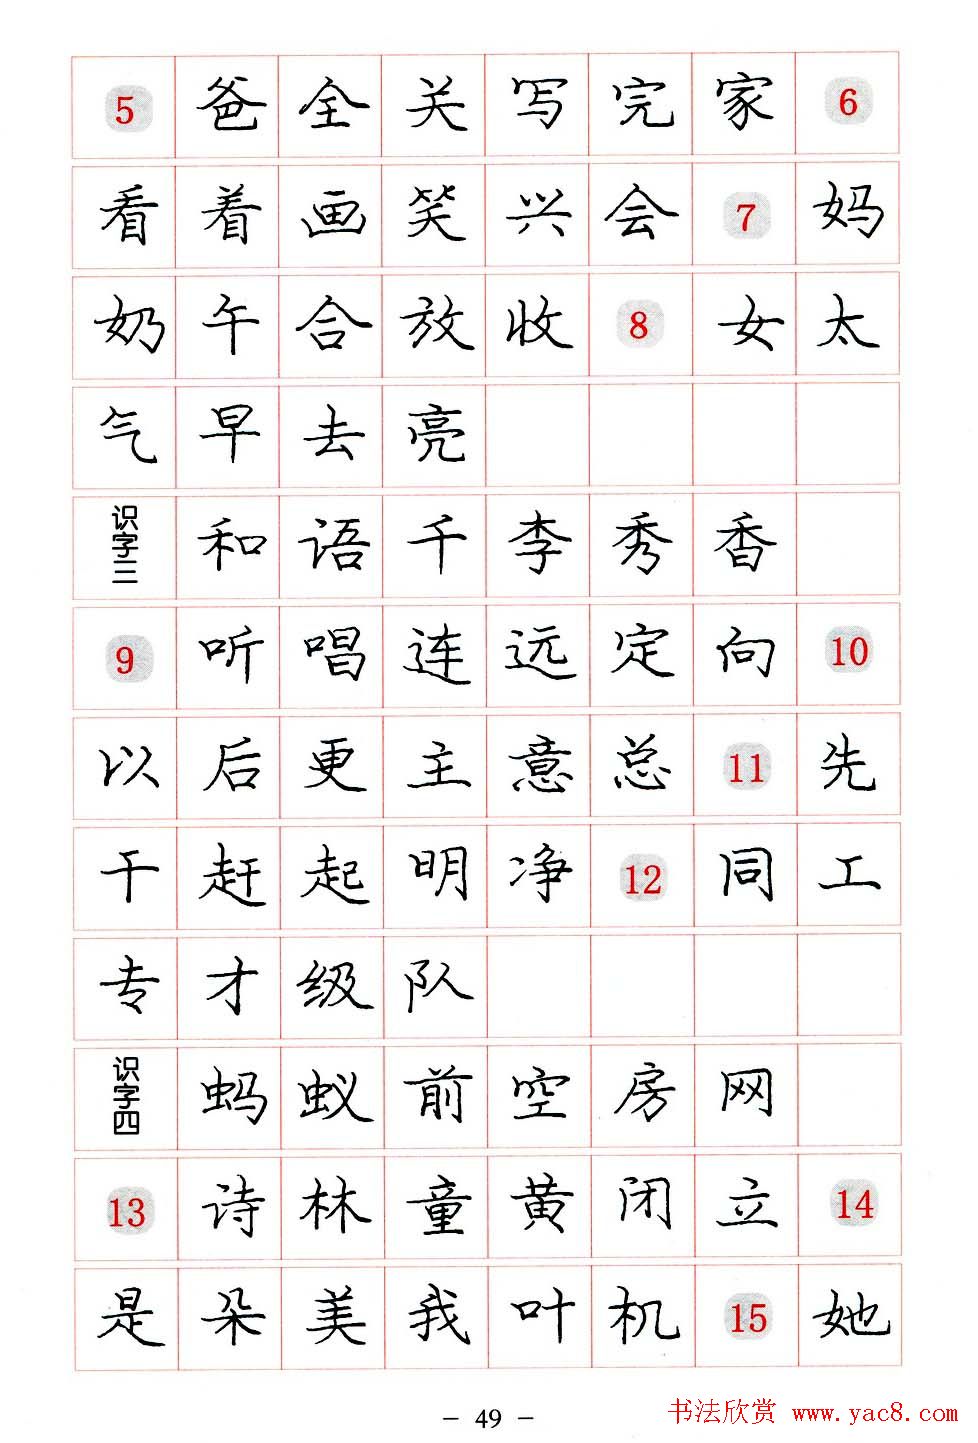 5 爸 全 关 写 完 家 6
看 着 画 笑 兴 会 7 妈
奶 午 合 放 收 8 女 太
气 早 去 亮
识字三 和 语 千 李 秀 香
9 听 唱 连 远 定 向 10
以 后 更 主 意 总 11 先
干 赶 起 明 净 12 同 工
专 才 级 队
识字四 蚂 蚁 前 空 房 网
13 诗 林 童 黄 闭 立 14
是 朵 美 我 叶 机 15 她
– 49 –
书法欣赏 www.yac8.com